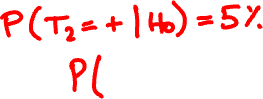 P(T₂=+|H₀)=5%
P(